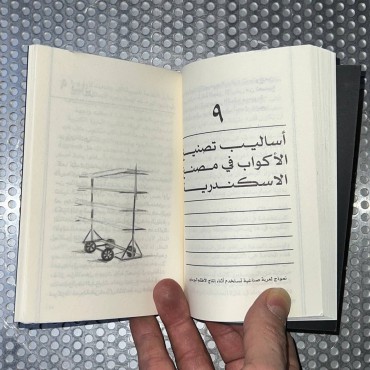 ٩
أساليب تصنيع
الأكواب في مصنع
الاسكندرية
نموذج لعربة صناعية تستخدم أثناء إنتاج